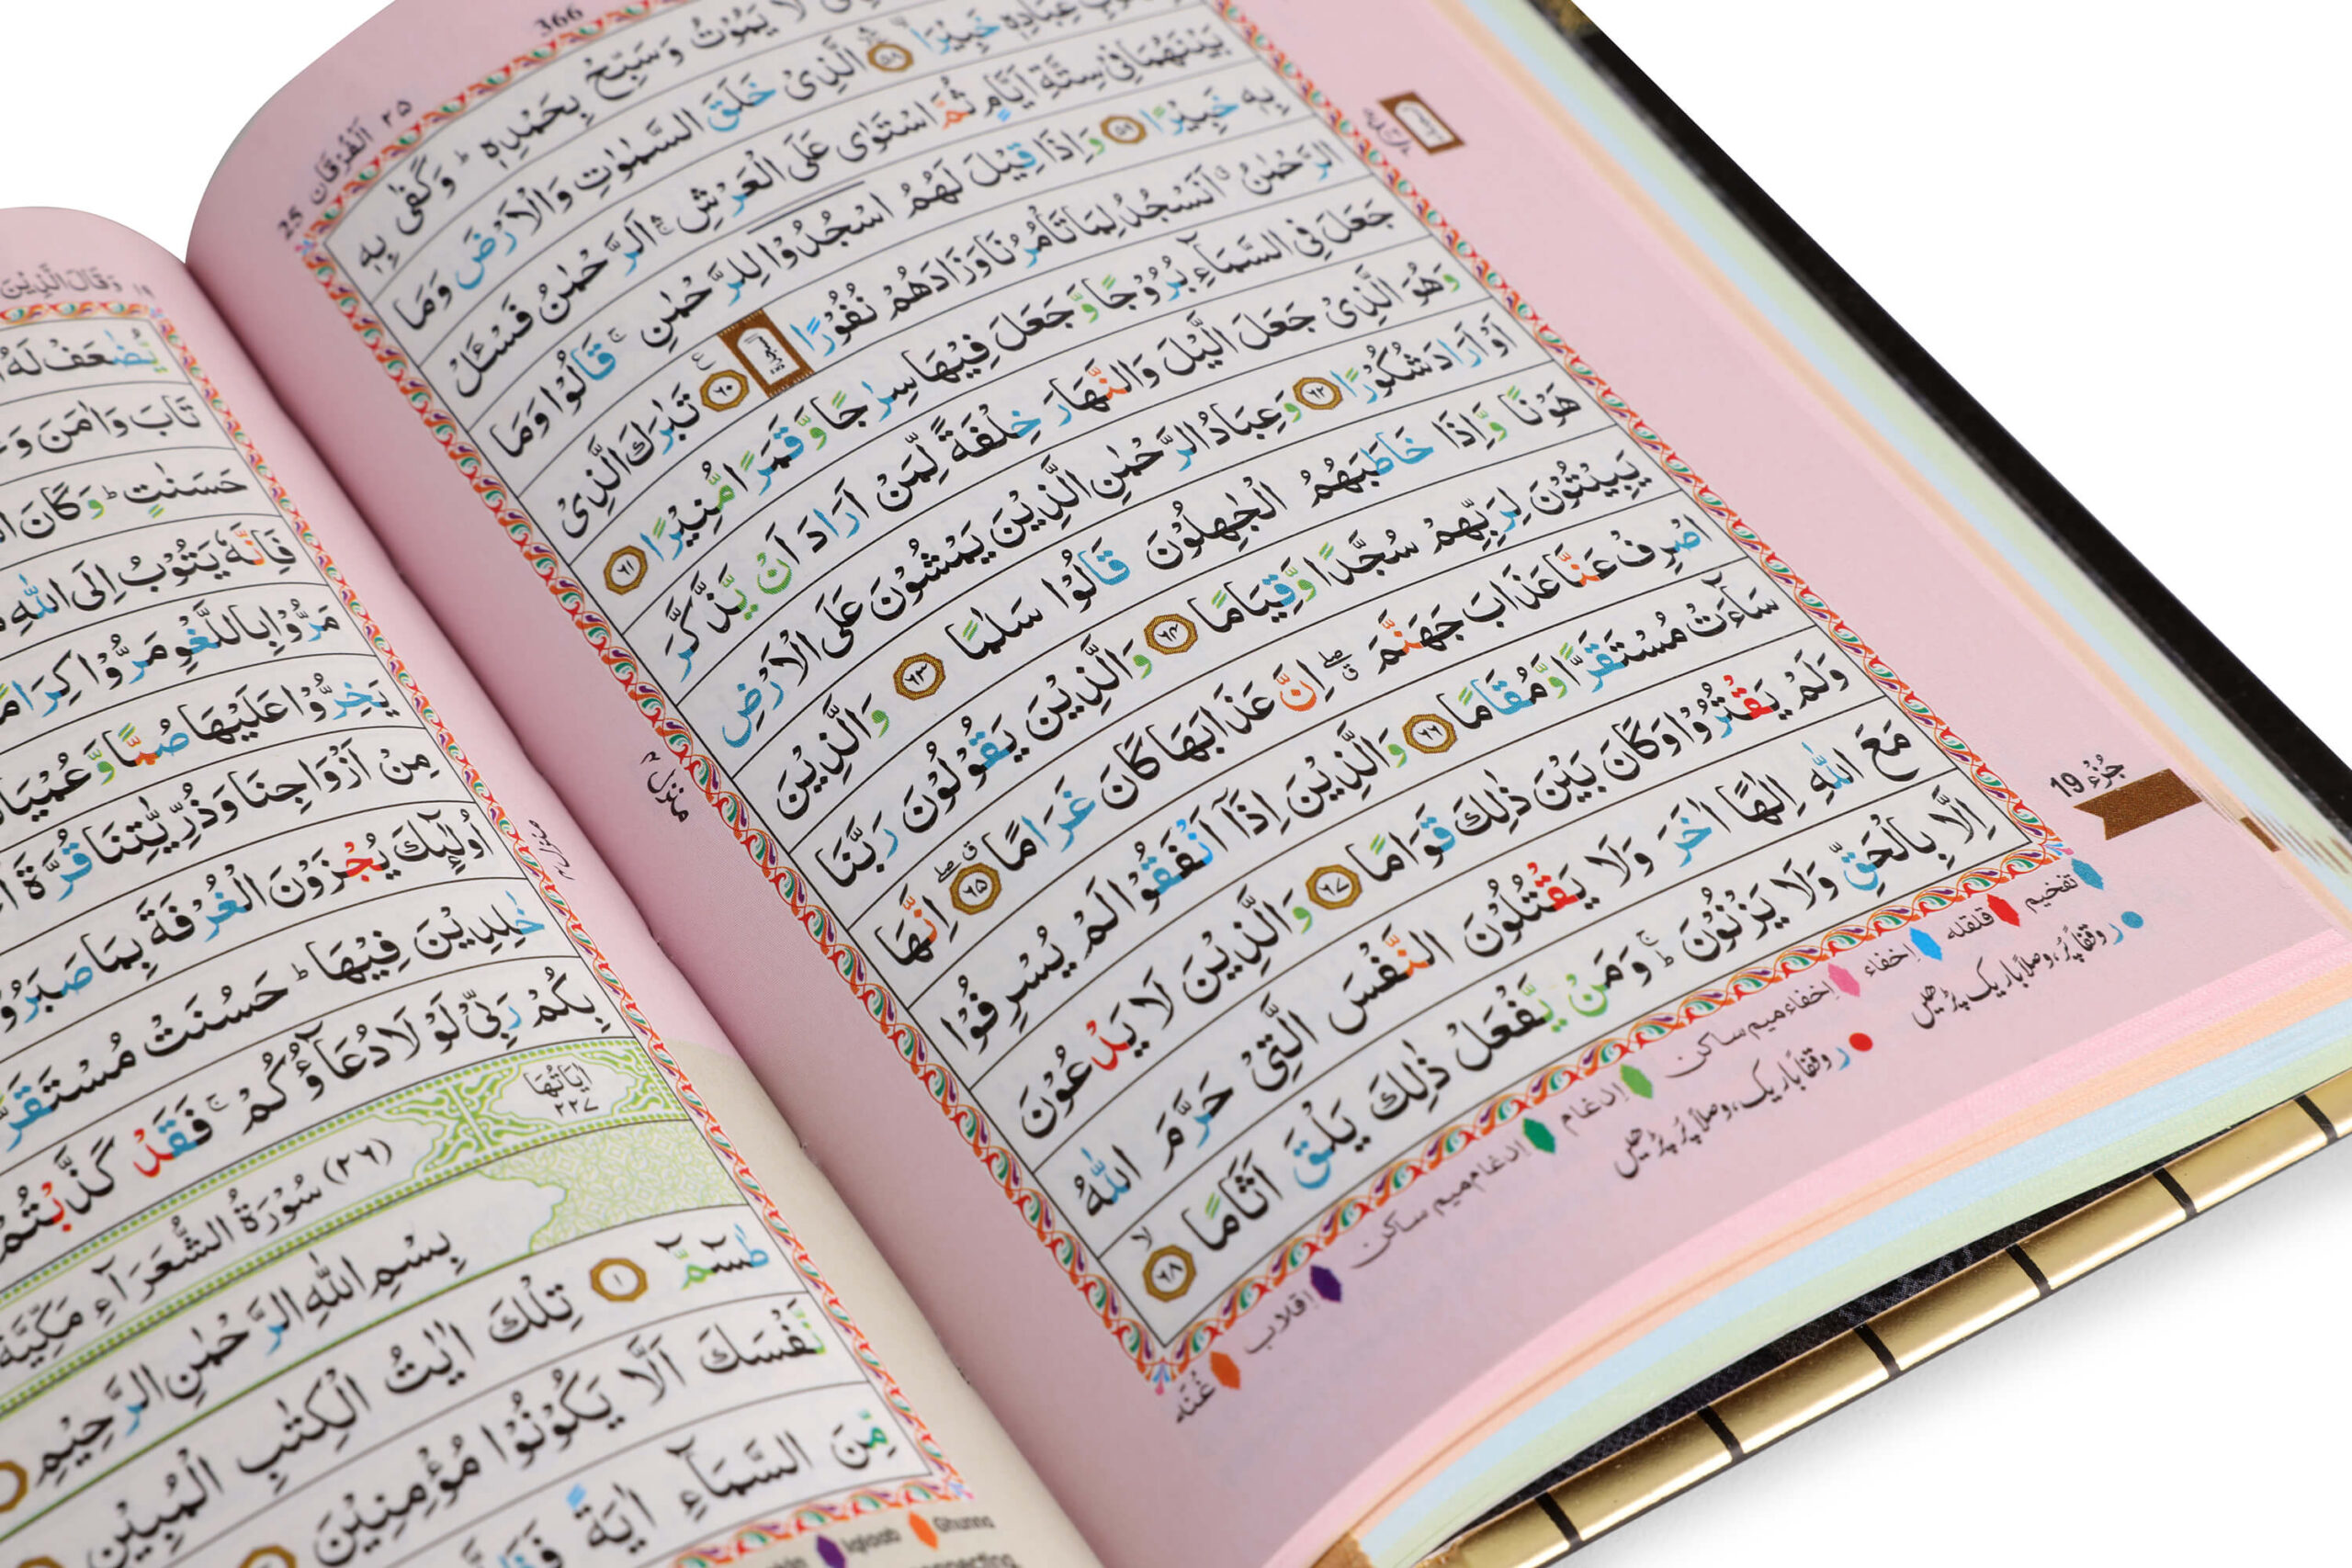 366
25 اَلْفُرْقَان ٢٥
لَا يَمُوْتُ وَسَبِّحْ بِحَمْدِهٖ ؕ وَكَفٰى بِهٖ
عِبَادِهٖ خَبِيْرًا ۙ ۵۸ الَّذِيْ خَلَقَ السَّمٰوٰتِ وَالْاَرْضَ وَمَا
بَيْنَهُمَا فِيْ سِتَّةِ اَيَّامٍ ثُمَّ اسْتَوٰى عَلَى الْعَرْشِ ۛۚ اَلرَّحْمٰنُ فَسْـَٔلْ
بِهٖ خَبِيْرًا ۵۹ وَاِذَا قِيْلَ لَهُمُ اسْجُدُوْا لِلرَّحْمٰنِ ۚ قَالُوْا وَمَا
الرَّحْمٰنُ ۗ اَنَسْجُدُ لِمَا تَاْمُرُنَا وَزَادَهُمْ نُفُوْرًا ۶۰ تَبٰرَكَ الَّذِيْ
جَعَلَ فِي السَّمَآءِ بُرُوْجًا وَّجَعَلَ فِيْهَا سِرٰجًا وَّقَمَرًا مُّنِيْرًا ۶۱
وَهُوَ الَّذِيْ جَعَلَ الَّيْلَ وَالنَّهَارَ خِلْفَةً لِّمَنْ اَرَادَ اَنْ يَّذَّكَّرَ
اَوْ اَرَادَ شُكُوْرًا ۶۲ وَعِبَادُ الرَّحْمٰنِ الَّذِيْنَ يَمْشُوْنَ عَلَى الْاَرْضِ
هَوْنًا وَّاِذَا خَاطَبَهُمُ الْجٰهِلُوْنَ قَالُوْا سَلٰمًا ۶۳ وَالَّذِيْنَ
يَبِيْتُوْنَ لِرَبِّهِمْ سُجَّدًا وَّقِيَامًا ۶۴ وَالَّذِيْنَ يَقُوْلُوْنَ رَبَّنَا
اصْرِفْ عَنَّا عَذَابَ جَهَنَّمَ ۖ اِنَّ عَذَابَهَا كَانَ غَرَامًا ۶۵ اِنَّهَا
سَآءَتْ مُسْتَقَرًّا وَّمُقَامًا ۶۶ وَالَّذِيْنَ اِذَآ اَنْفَقُوْا لَمْ يُسْرِفُوْا
وَلَمْ يَقْتُرُوْا وَكَانَ بَيْنَ ذٰلِكَ قَوَامًا ۶۷ وَالَّذِيْنَ لَا يَدْعُوْنَ
مَعَ اللّٰهِ اِلٰهًا اٰخَرَ وَلَا يَقْتُلُوْنَ النَّفْسَ الَّتِيْ حَرَّمَ اللّٰهُ
اِلَّا بِالْحَقِّ وَلَا يَزْنُوْنَ ۚ وَمَنْ يَّفْعَلْ ذٰلِكَ يَلْقَ اَثَامًا ۶۸ ۙ
السجدة
منزل ٤
جُزْء 19
تفخیم قلقله إخفاء إخفاء میم ساکن إدغام إدغام میم ساکن إقلاب غُنّه
ر وقفاً پُر، وصلاً باریک پڑھیں ر وقفاً باریک، وصلاً پُر پڑھیں
وَقَالَ الَّذِيْنَ ١٩
يُّضٰعَفْ لَهُ
تَابَ وَاٰمَنَ
حَسَنٰتٍ ؕ وَكَانَ
فَاِنَّهٗ يَتُوْبُ اِلَى اللّٰهِ
مَرُّوْا بِاللَّغْوِ مَرُّوْا كِرَامًا
يَخِرُّوْا عَلَيْهَا صُمًّا وَّعُمْيَانًا
مِنْ اَزْوَاجِنَا وَذُرِّيّٰتِنَا قُرَّةَ
اُولٰٓئِكَ يُجْزَوْنَ الْغُرْفَةَ بِمَا صَبَرُوْا
خٰلِدِيْنَ فِيْهَا ؕ حَسُنَتْ مُسْتَقَرًّا
بِكُمْ رَبِّيْ لَوْلَا دُعَآؤُكُمْ ۚ فَقَدْ كَذَّبْتُمْ
اٰيَاتُهَا ٢٢٧
(٢٦) سُوْرَةُ الشُّعَرَآءِ مَكِّيَّةٌ
بِسْمِ اللّٰهِ الرَّحْمٰنِ الرَّحِيْمِ
طٰسٓمّٓ ١ تِلْكَ اٰيٰتُ الْكِتٰبِ الْمُبِيْنِ
نَّفْسَكَ اَلَّا يَكُوْنُوْا مُؤْمِنِيْنَ
مِّنَ السَّمَآءِ اٰيَةً
Iqlaab Ghunna